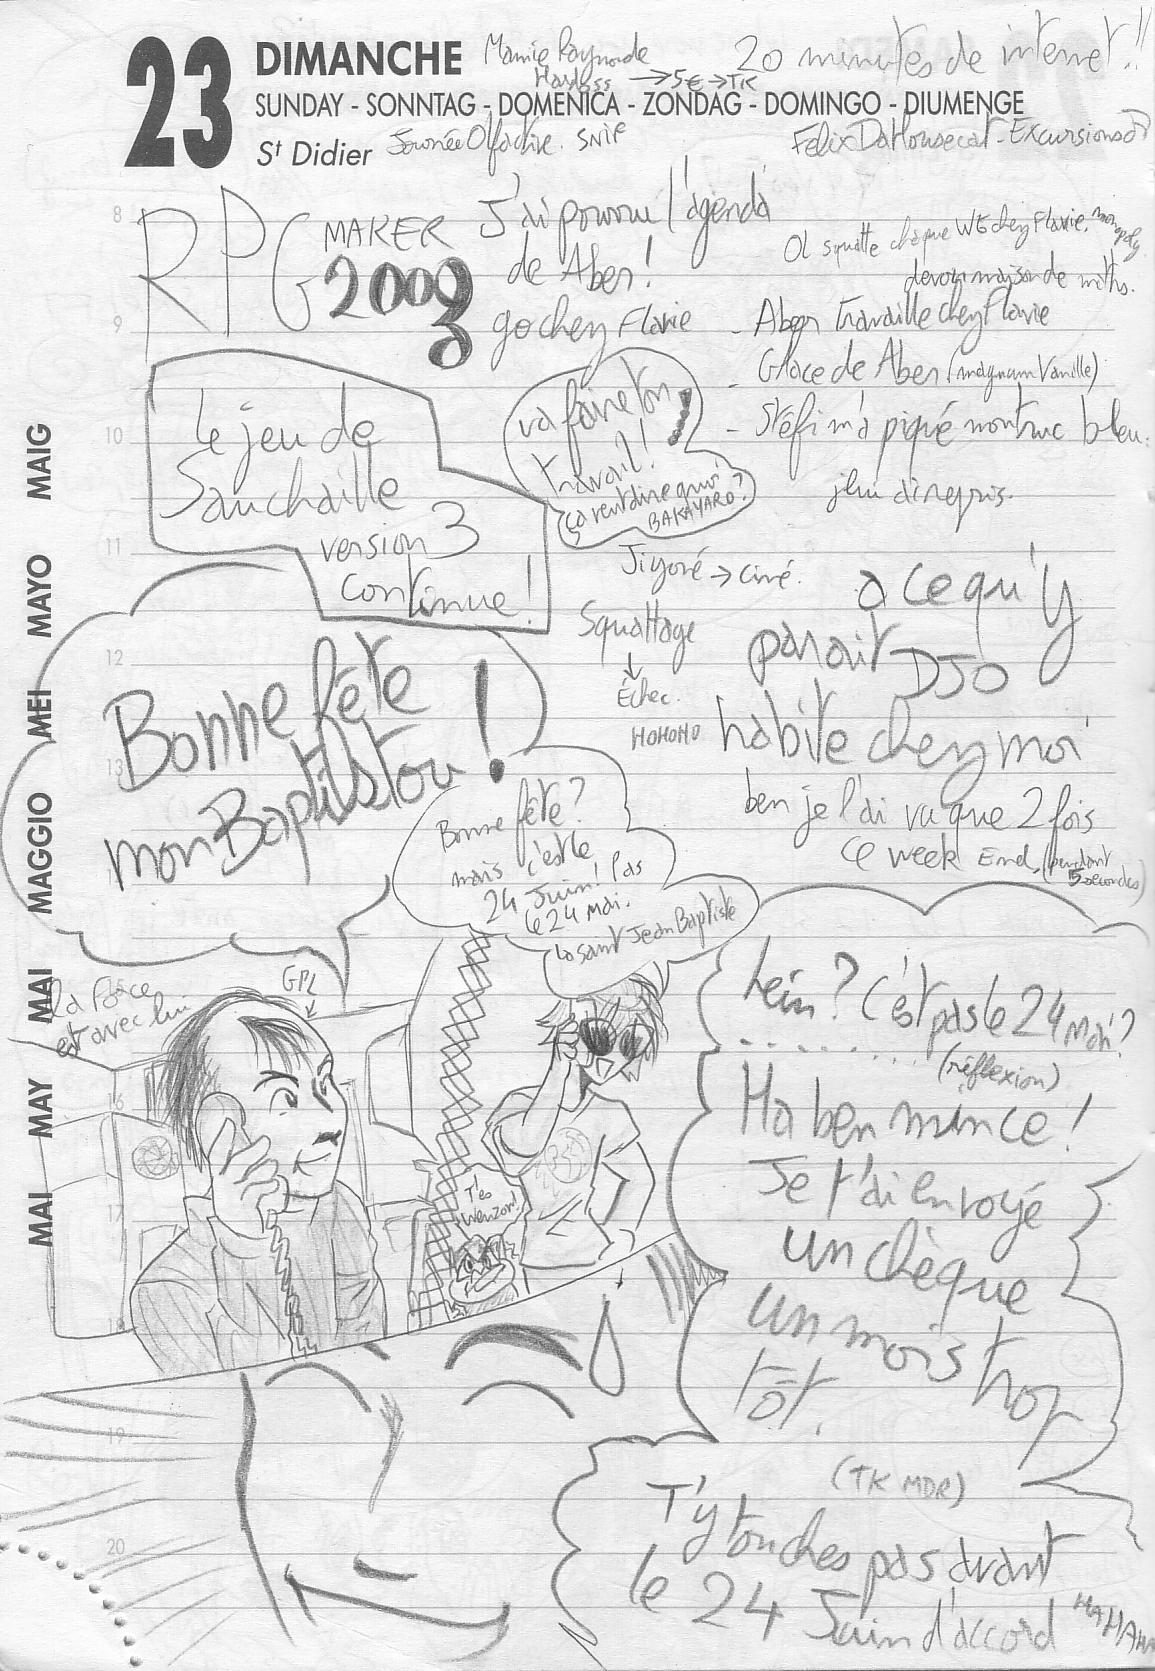 23
DIMANCHE
SUNDAY - SONNTAG - DOMENICA - ZONDAG - DOMINGO - DIUMENGE
St Didier
Mamie Raymonde
→ 5€ → TK
20 minutes de internet!!
Journée Olfactive. SNIF
Felix DaHousecat - Excursions
8
RPG MAKER
2003
J'ai pourru l'agenda
de Aben!
go chez Flavie
Ol squatte chaque WE chez Flavie. monopoly
devoir maison de maths.
9
- Aben travaille chez Flavie
- Glace de Aben (magnum Vanille)
- Stéfi m'a piqué mon truc bleu.
j'lui ai repris.
10
Le jeu de
Sauchaille
version 3
continue!
va faire ton
travail!
ça veut dire quoi
BAKAYARO?
11
Jiyoné → ciné.
Squattage
↓
Échec.
HOHOHO
a ce qu'y
parait DJO
habite chez moi
ben je l'ai vu que 2 fois
ce week End, (pendant
5 secondes)
12
13
Bonne fête
mon Baptistou!
Bonne fête?
mais c'est le
24 Juin! Pas
le 24 mai.
la saint Jean Baptiste
MAI MAY MAI MAGGIO MEI MAYO MAIG
La Force
est avec lui
GPL
↓
hein? C'est pas le 24 mai?
.........
(réflexion)
Ha ben mince!
Je t'ai envoyé
un chèque
un mois trop
tôt.
16
17
T'es
Wenzon!
18
19
(TK MDR)
T'y touches pas avant
le 24 Juin d'accord
HAHAHA
20